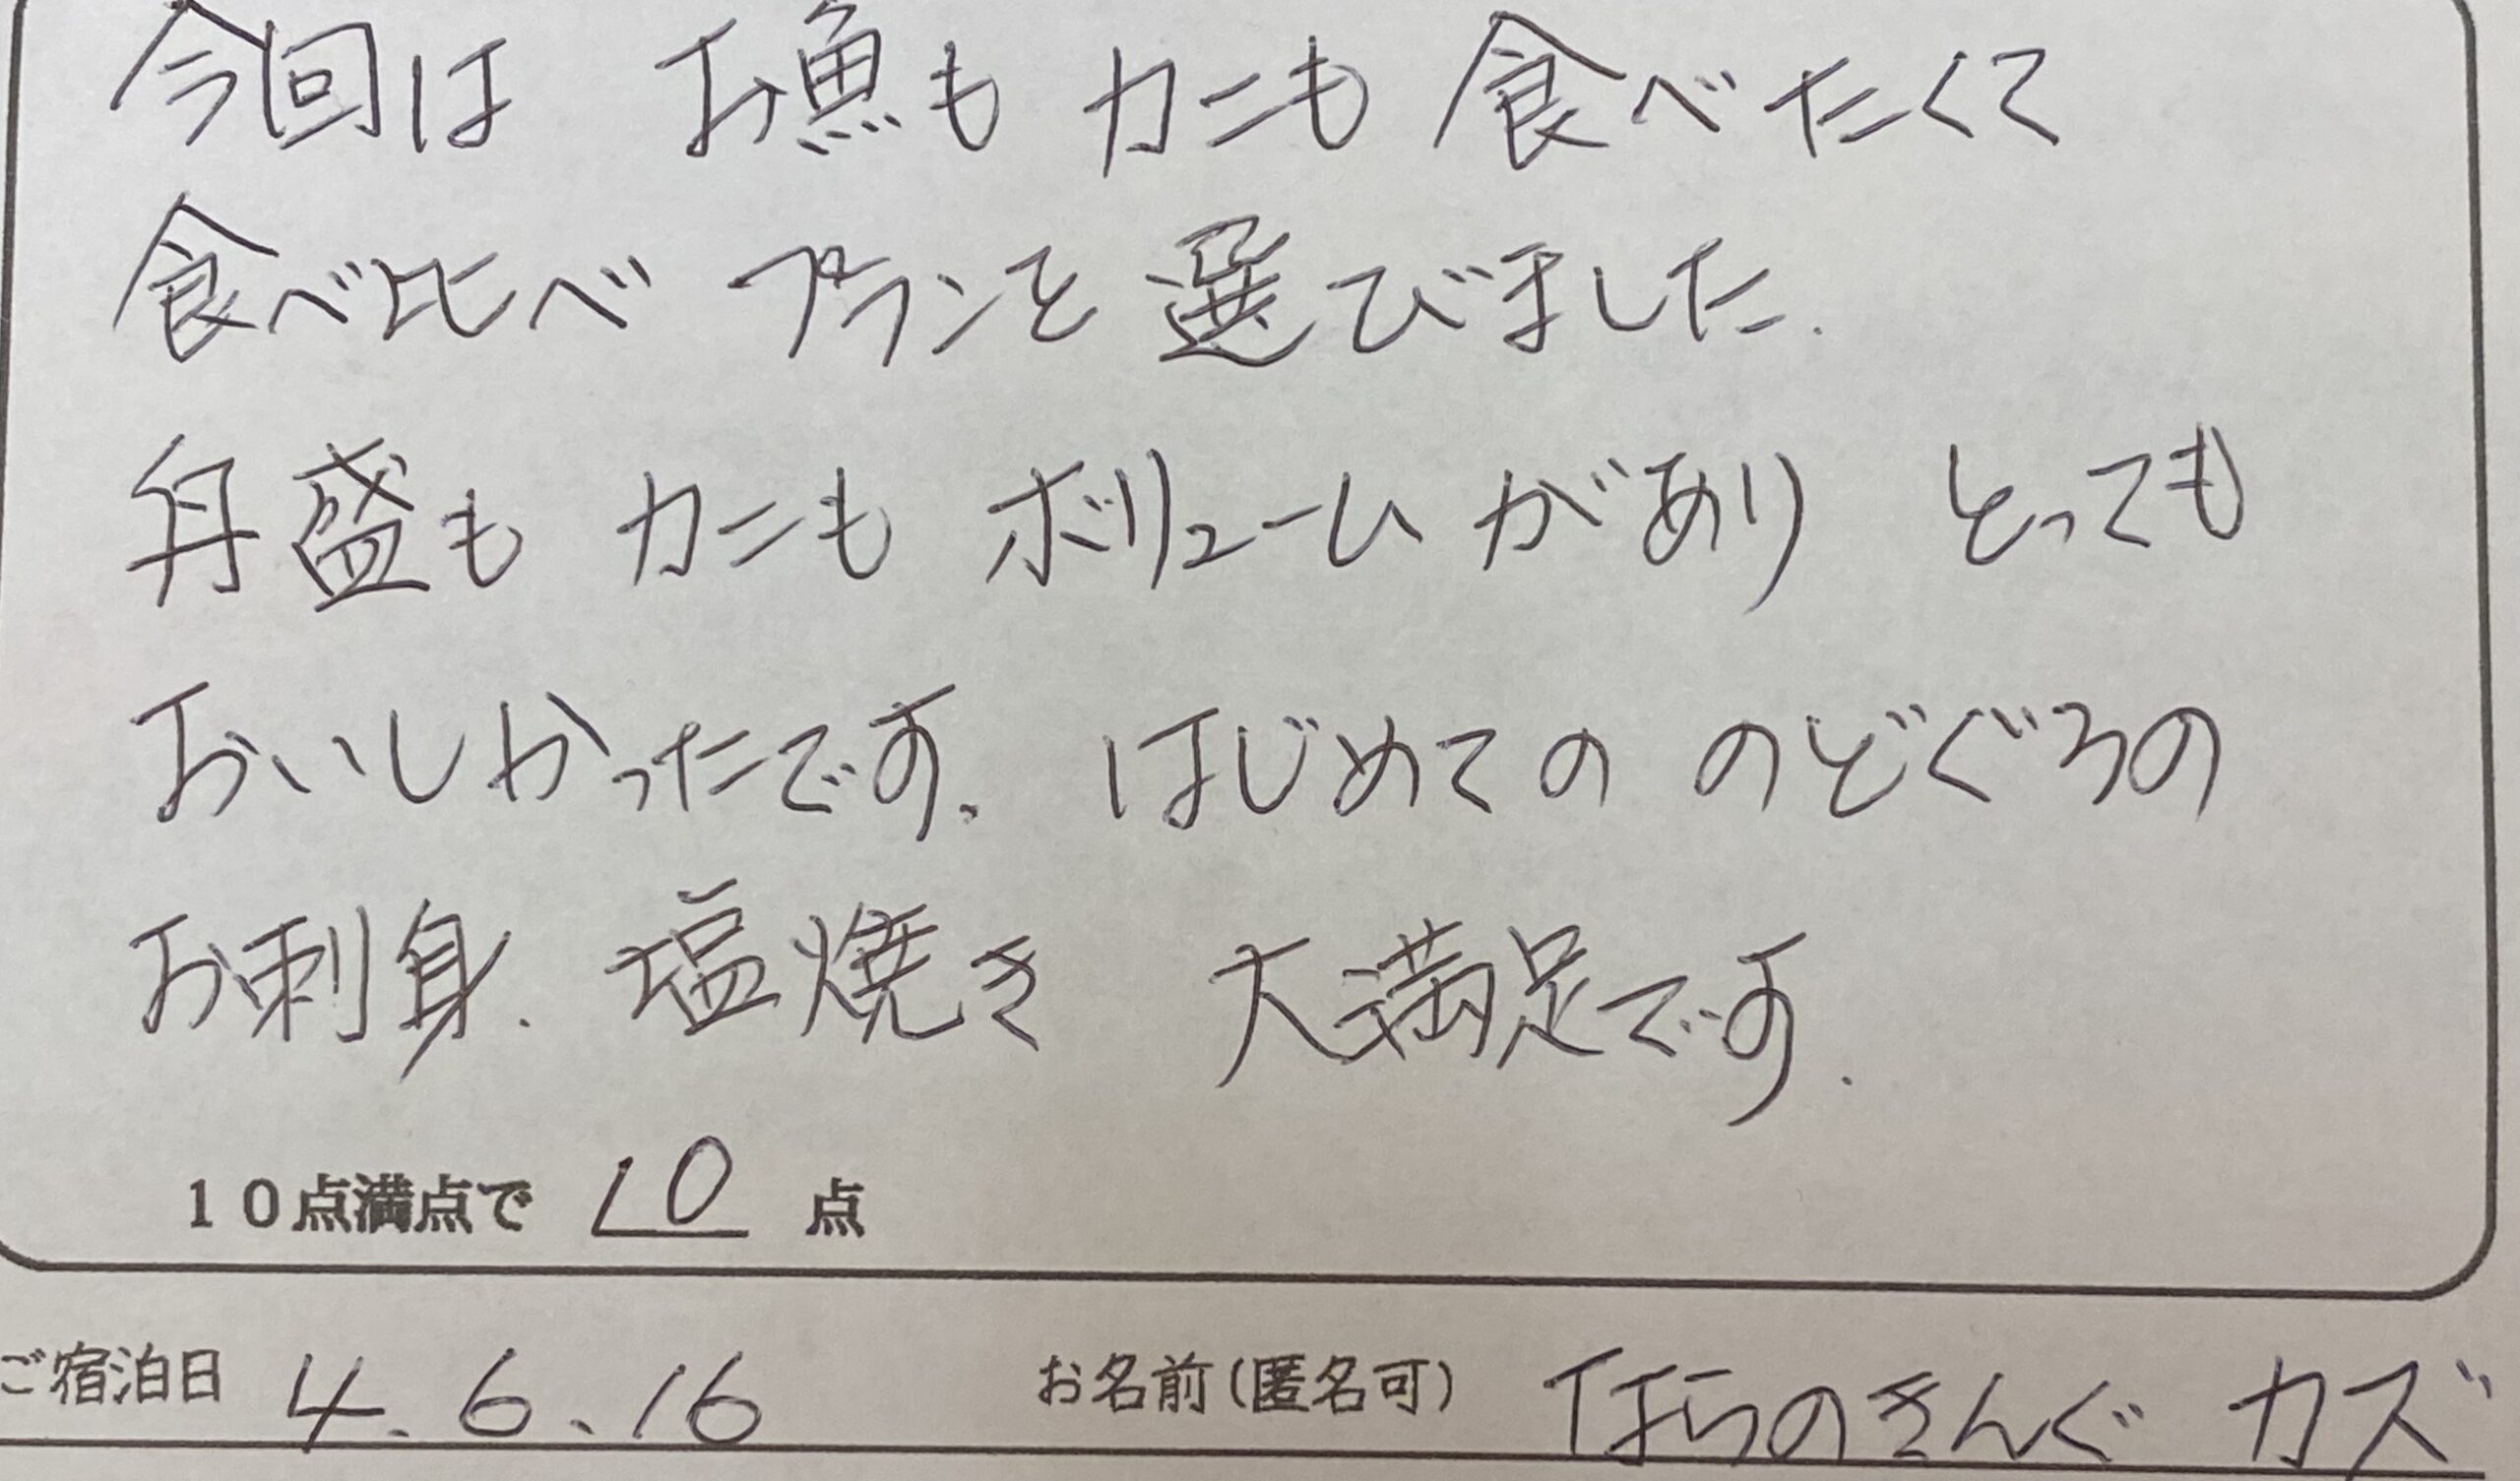 今回は お魚も カニも 食べたくて
食べ比べ プランを 選びました.
舟盛も カニも ボリュームがあり とっても
おいしかったです. はじめての のどぐろの
お刺身. 塩焼き 大満足です.
10点満点で 10 点
ご宿泊日 4.6.16 お名前(匿名可) はらのきんぐ カズ